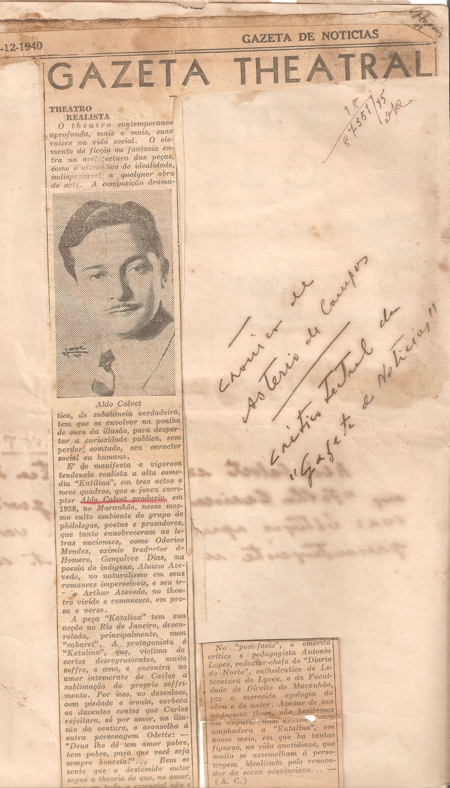 -12-1940
GAZETA DE NOTICIAS
GAZETA THEATRAL
THEATRO
REALISTA
O theatro contemporaneo
aprofunda, mais e mais, suas
raizes na vida social. O ele-
mento de ficção ou fantasia en-
tra na architectura das peças,
como de idealidade,
indispensavel a qualquer obra
de arte. A composição drama-
Aldo Calvet
tica, de substancia verdadeira,
tem que se envolver na poalha
de ouro da illusão, para desper-
tar a curiosidade publica, sem
perder, comtudo, seu caracter
social ou humano.
E' de manifesta e vigorosa
tendencia realista a alta come-
dia "Katilina", em tres actos e
nove quadros, que o joven escri-
ptor Aldo Calvet produziu, em
1938, no Maranhão, nesse mes-
mo culto ambiente do grupo de
philologos, poetas e prosadores,
que tanto ennobreceram as le-
tras nacionaes, como Odorico
Mendes, eximio traductor de
Homero, Gonçalves Dias, na
poesia do indigena, Aluizio Aze-
vedo, no naturalismo em seus
romances impereciveis, e seu ir-
o Arthur Azevedo, no thea-
tro vivido e romanesco, em pro-
sa e verso.
A peça "Katalina" tem sua
acção no Rio de Janeiro, desen-
rolada, principalmente, num
"cabaret". A protagonista é
"Katalina", que, victima de
certos desregramentos, muito
soffre, e ama, e encontra no
amor intemerato de Carlos a
sublimação do proprio soffri-
mento. Por isso, no desenlace,
com piedade e ironia, verbera
os duzentos contos que Carlos
rejeitára, só por amor, na illu-
são da ventura, e aconselha á
outra personagem Odette: —
"Deus lhe dê um amor pobre,
bem pobre, para que você seja
sempre honesta!"... Bem se
sente que o destemido autor
segue a theoria de que, no amor,
No "post-facio", o emerito
critico e pedagogista Antonio
Lopes, redactor-chefe do "Diario
do Norte", cathedratico de Li-
teratura do Lyceu, e da Facul-
dade de Direito do Maranhão,
faz a merecida apologia da
obra e do autor. Apesar de sua
audaciosa these, não hesitamos
umphadora a "Katalina", em
nosso meio, em que ha tantas
figuras, na vida quotidiana, que
muito se assemelham á perso-
nagem idealizada pelo renova-
dor da scena provinciana. —
(A. C.)
Crônica de
Asterio de Campos
Critico teatral da
"Gazeta de Noticias"